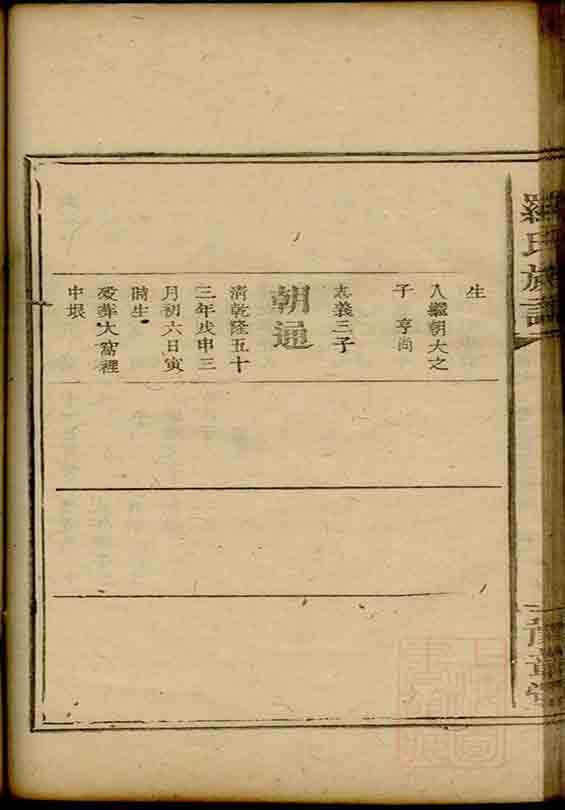 羅氏族譜
豫章堂
生
人繼朝大之
子 亨尚
志義三子
朝通
清乾隆五十
三年戊申三
月初六日寅
時生
歿葬大窩裡
中垠